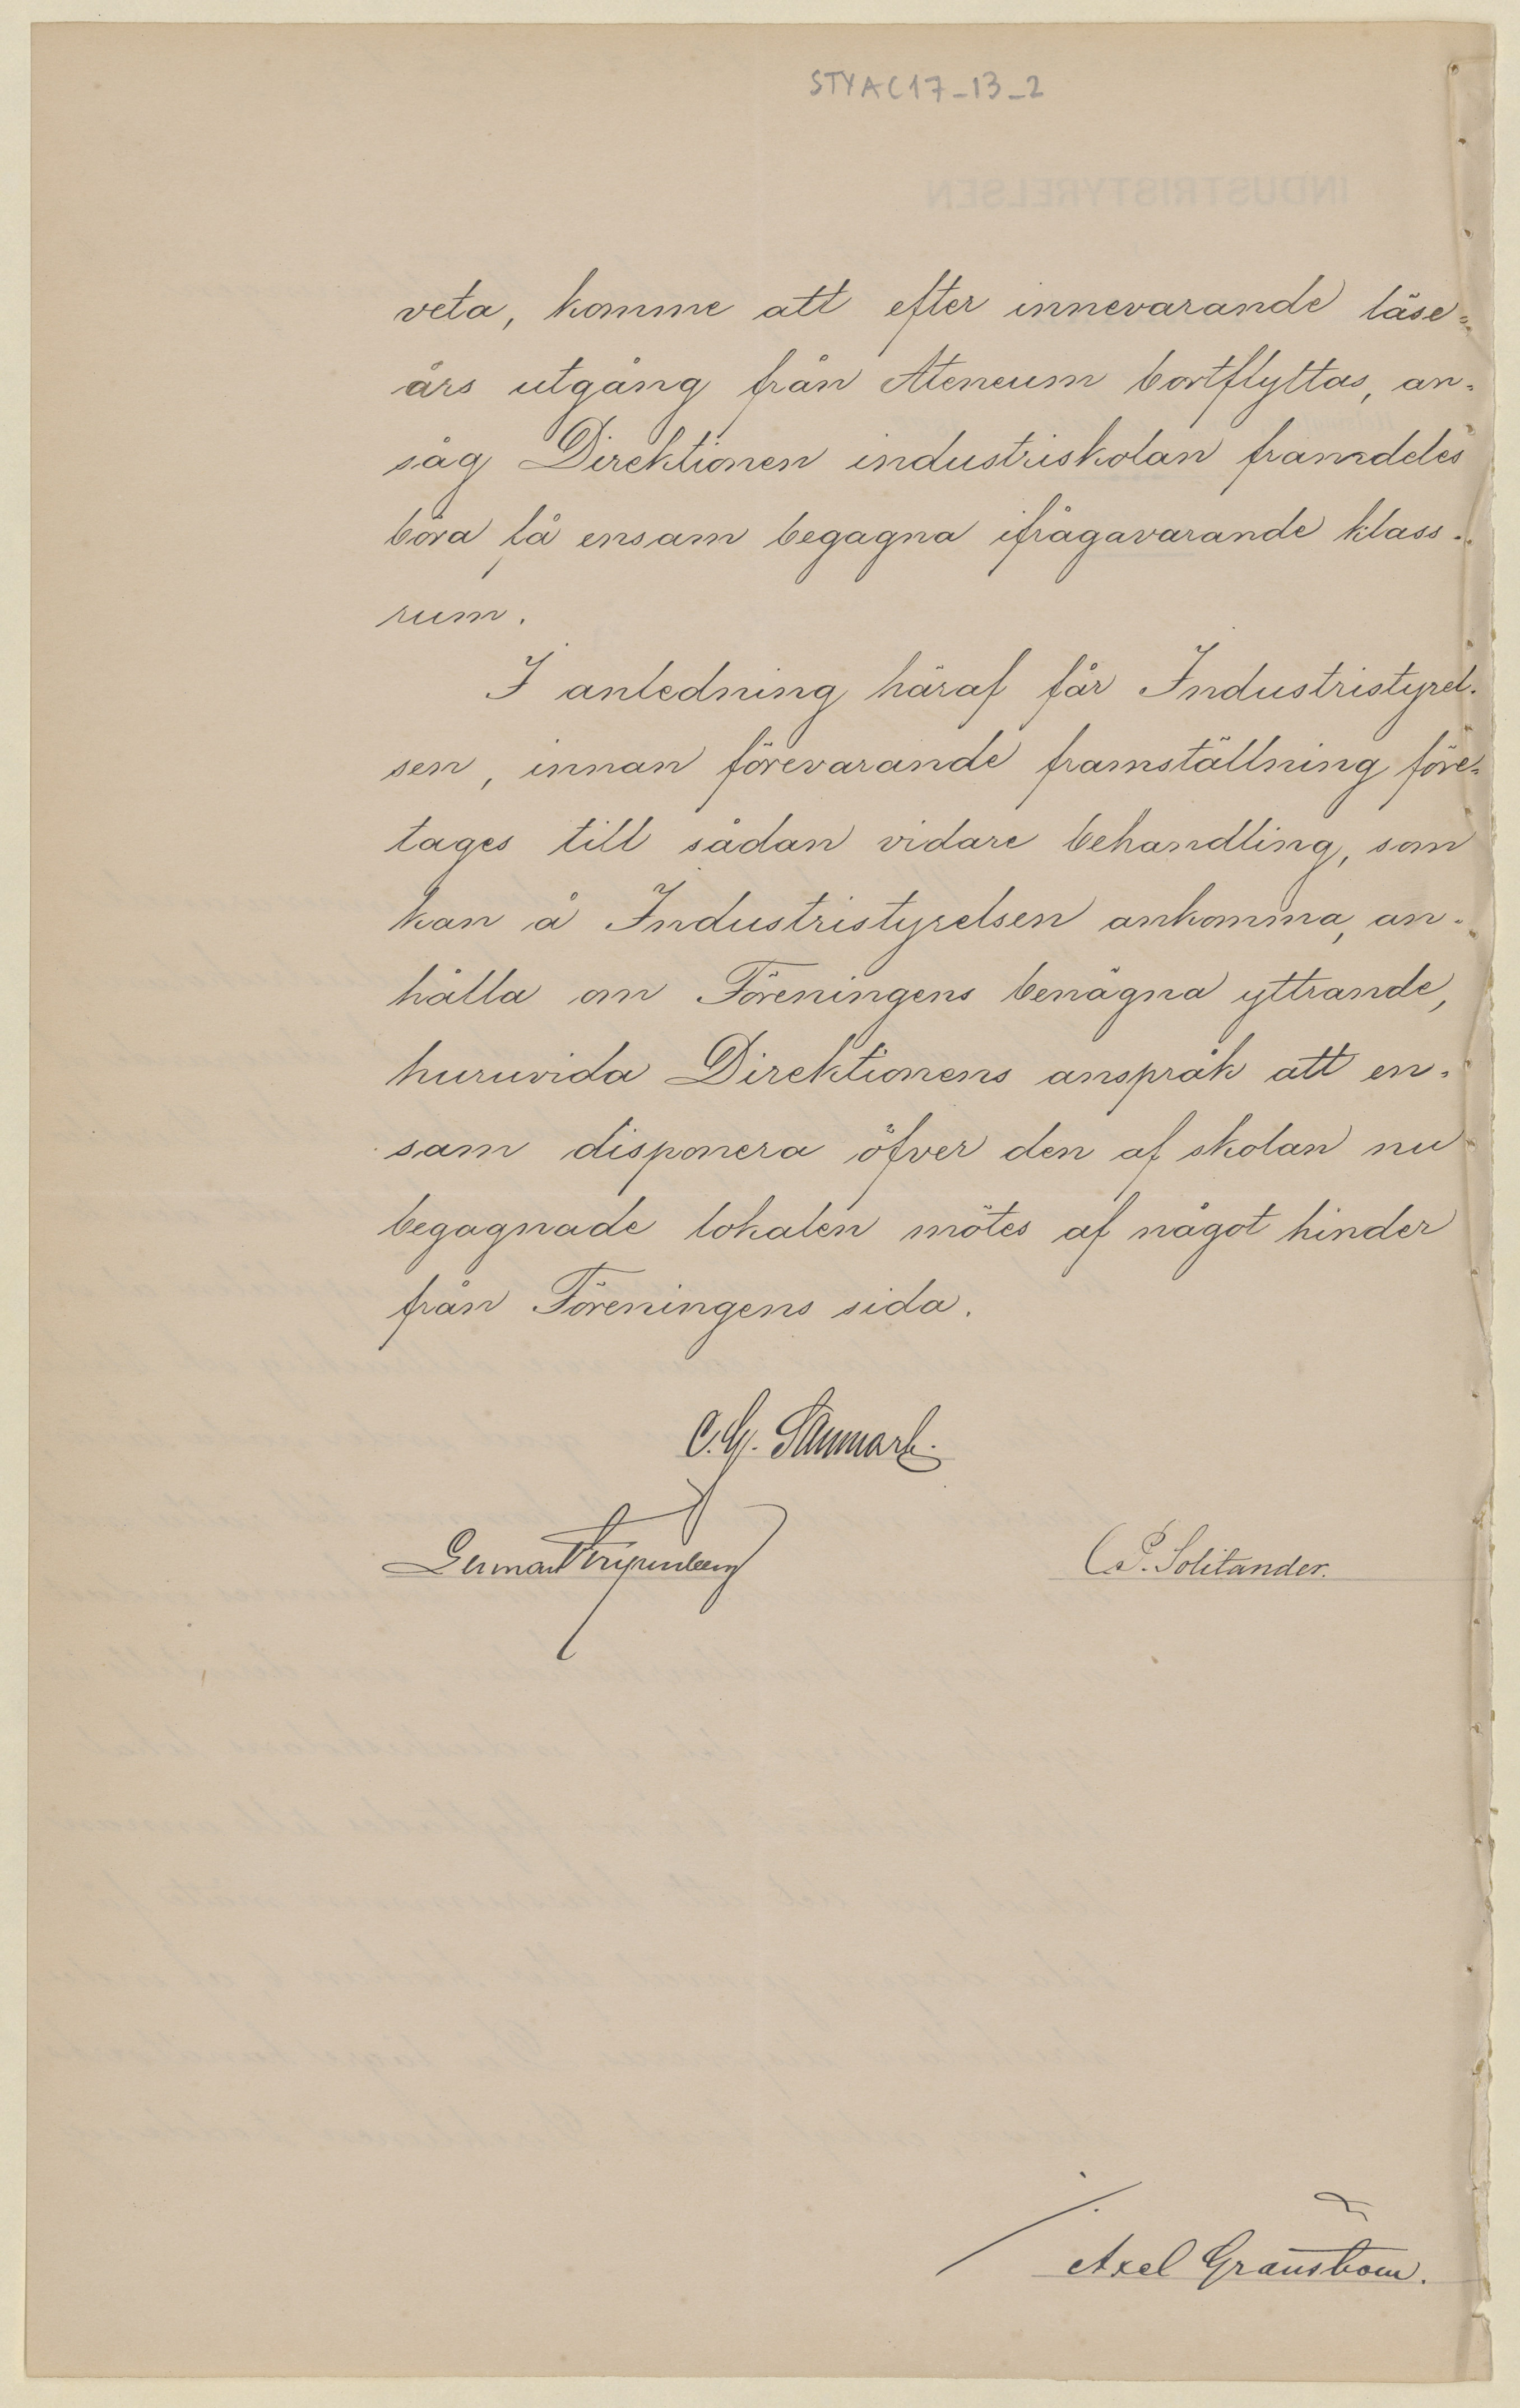 STYAC17_13_2
INDUSTRISTYRELSEN
veta, komme att efter innevarande läse-
års utgång från Ateneum bortflyttas, an-
såg Direktionen industriskolan framdeles
böra få ensam begagna ifrågavarande klass-
rum.
I anledning häraf får Industristyrel-
sen, innan förevarande framställning före-
tages till sådan vidare behandling, som
kan å Industristyrelsen ankomma, an-
hålla om Föreningens benägna yttrande,
huruvida Direktionens anspråk att en-
sam disponera öfver den af skolan nu
begagnade lokalen mötes af något hinder
från Föreningens sida.
C. G. Sanmark.
C. P. Solitander.
Axel Granström.